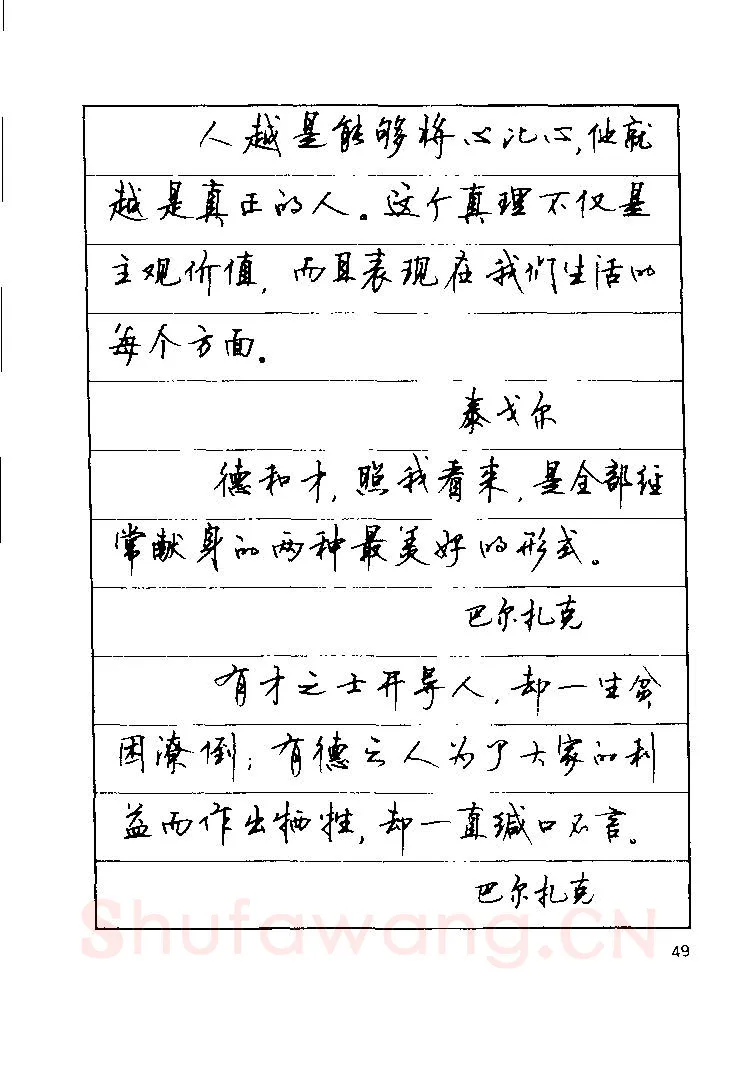 人越是能够将心比心,他就
越是真正的人。这个真理不仅是
主观价值,而且表现在我们生活的
每个方面。
泰戈尔
德和才,照我看来,是全部经
常献身的两种最美好的形式。
巴尔扎克
有才之士开导人,却一生贫
困潦倒;有德之人为了大家的利
益而作出牺牲,却一直缄口不言。
巴尔扎克
Shufawang.CN
49